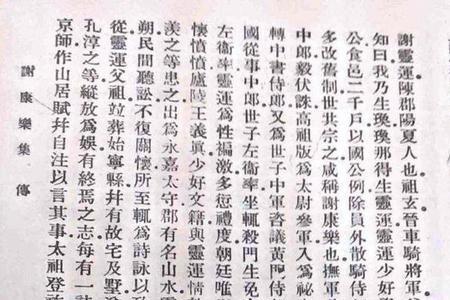 謝靈運陳郡陽夏人也祖玄晉車騎將軍
知曰我乃生瑍瑍那得生靈運靈運少好
公食邑二千戶以國公例除員外散騎侍
多改舊制世共宗之咸稱謝康樂也撫軍
中郎毅伏誅高祖版爲太尉參軍入爲祕
轉中書侍郎又爲世子中軍咨議黃門侍
國從事中郎世子左衛率坐輒殺門生免
左衛率靈運爲性褊激多愆禮度朝廷唯
懷憤憤廬陵王義眞少好文籍與靈運情
羨之等患之出爲永嘉太守郡有名山水
朔民間聽訟不復關懷所至輒爲詩詠以致
從靈運父祖竝葬始寧縣幷有故宅及墅
孔淳之等縱放爲娛有終焉之志每有一詩
京師作山居賦幷自注以言其事太祖登
謝康樂集 傳